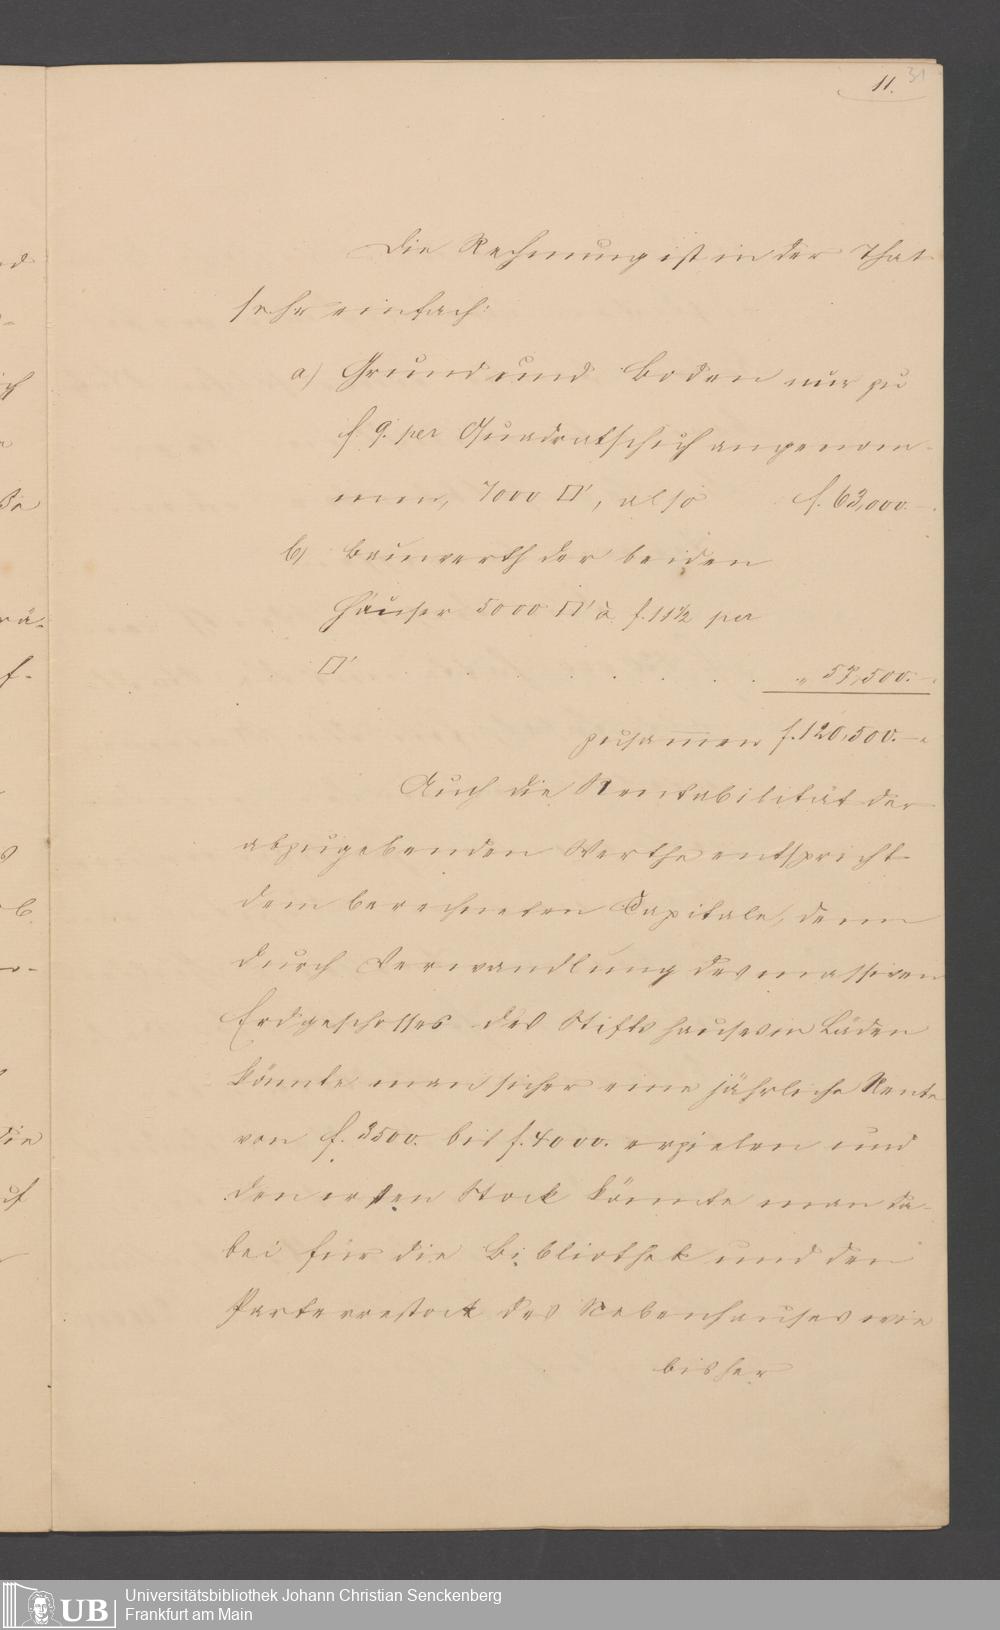 11. 31
Die Rechnung ist in der That
sehr einfach:
a) Grund und Boden nur zu
f. 9. per Quadratschuh angenom-
men, 7000 □', also f. 63,000.—.
b) Bauwerth der beiden
Häuser 5000 □' à f. 11½ per
□' . . . . . . . „ 57,500.—.
zusammen f. 120,500.—.
Auch die Rentabilität der
abzugebenden Werthe entspricht
dem berechneten Capitale, denn
durch Verwandlung des massiven
Erdgeschosses des Stiftshauses in Läden
könnte man sicher eine jährliche Rente
von f. 3500. bis f. 4000. erzielen und
den ersten Stock könnte man da-
bei für die Bibliothek und den
Parterrestock des Nebenhauses wie
bisher
nd
-
ich
ße
rä-
f-
b.
o-
die
uf
UB Universitätsbibliothek Johann Christian Senckenberg
Frankfurt am Main